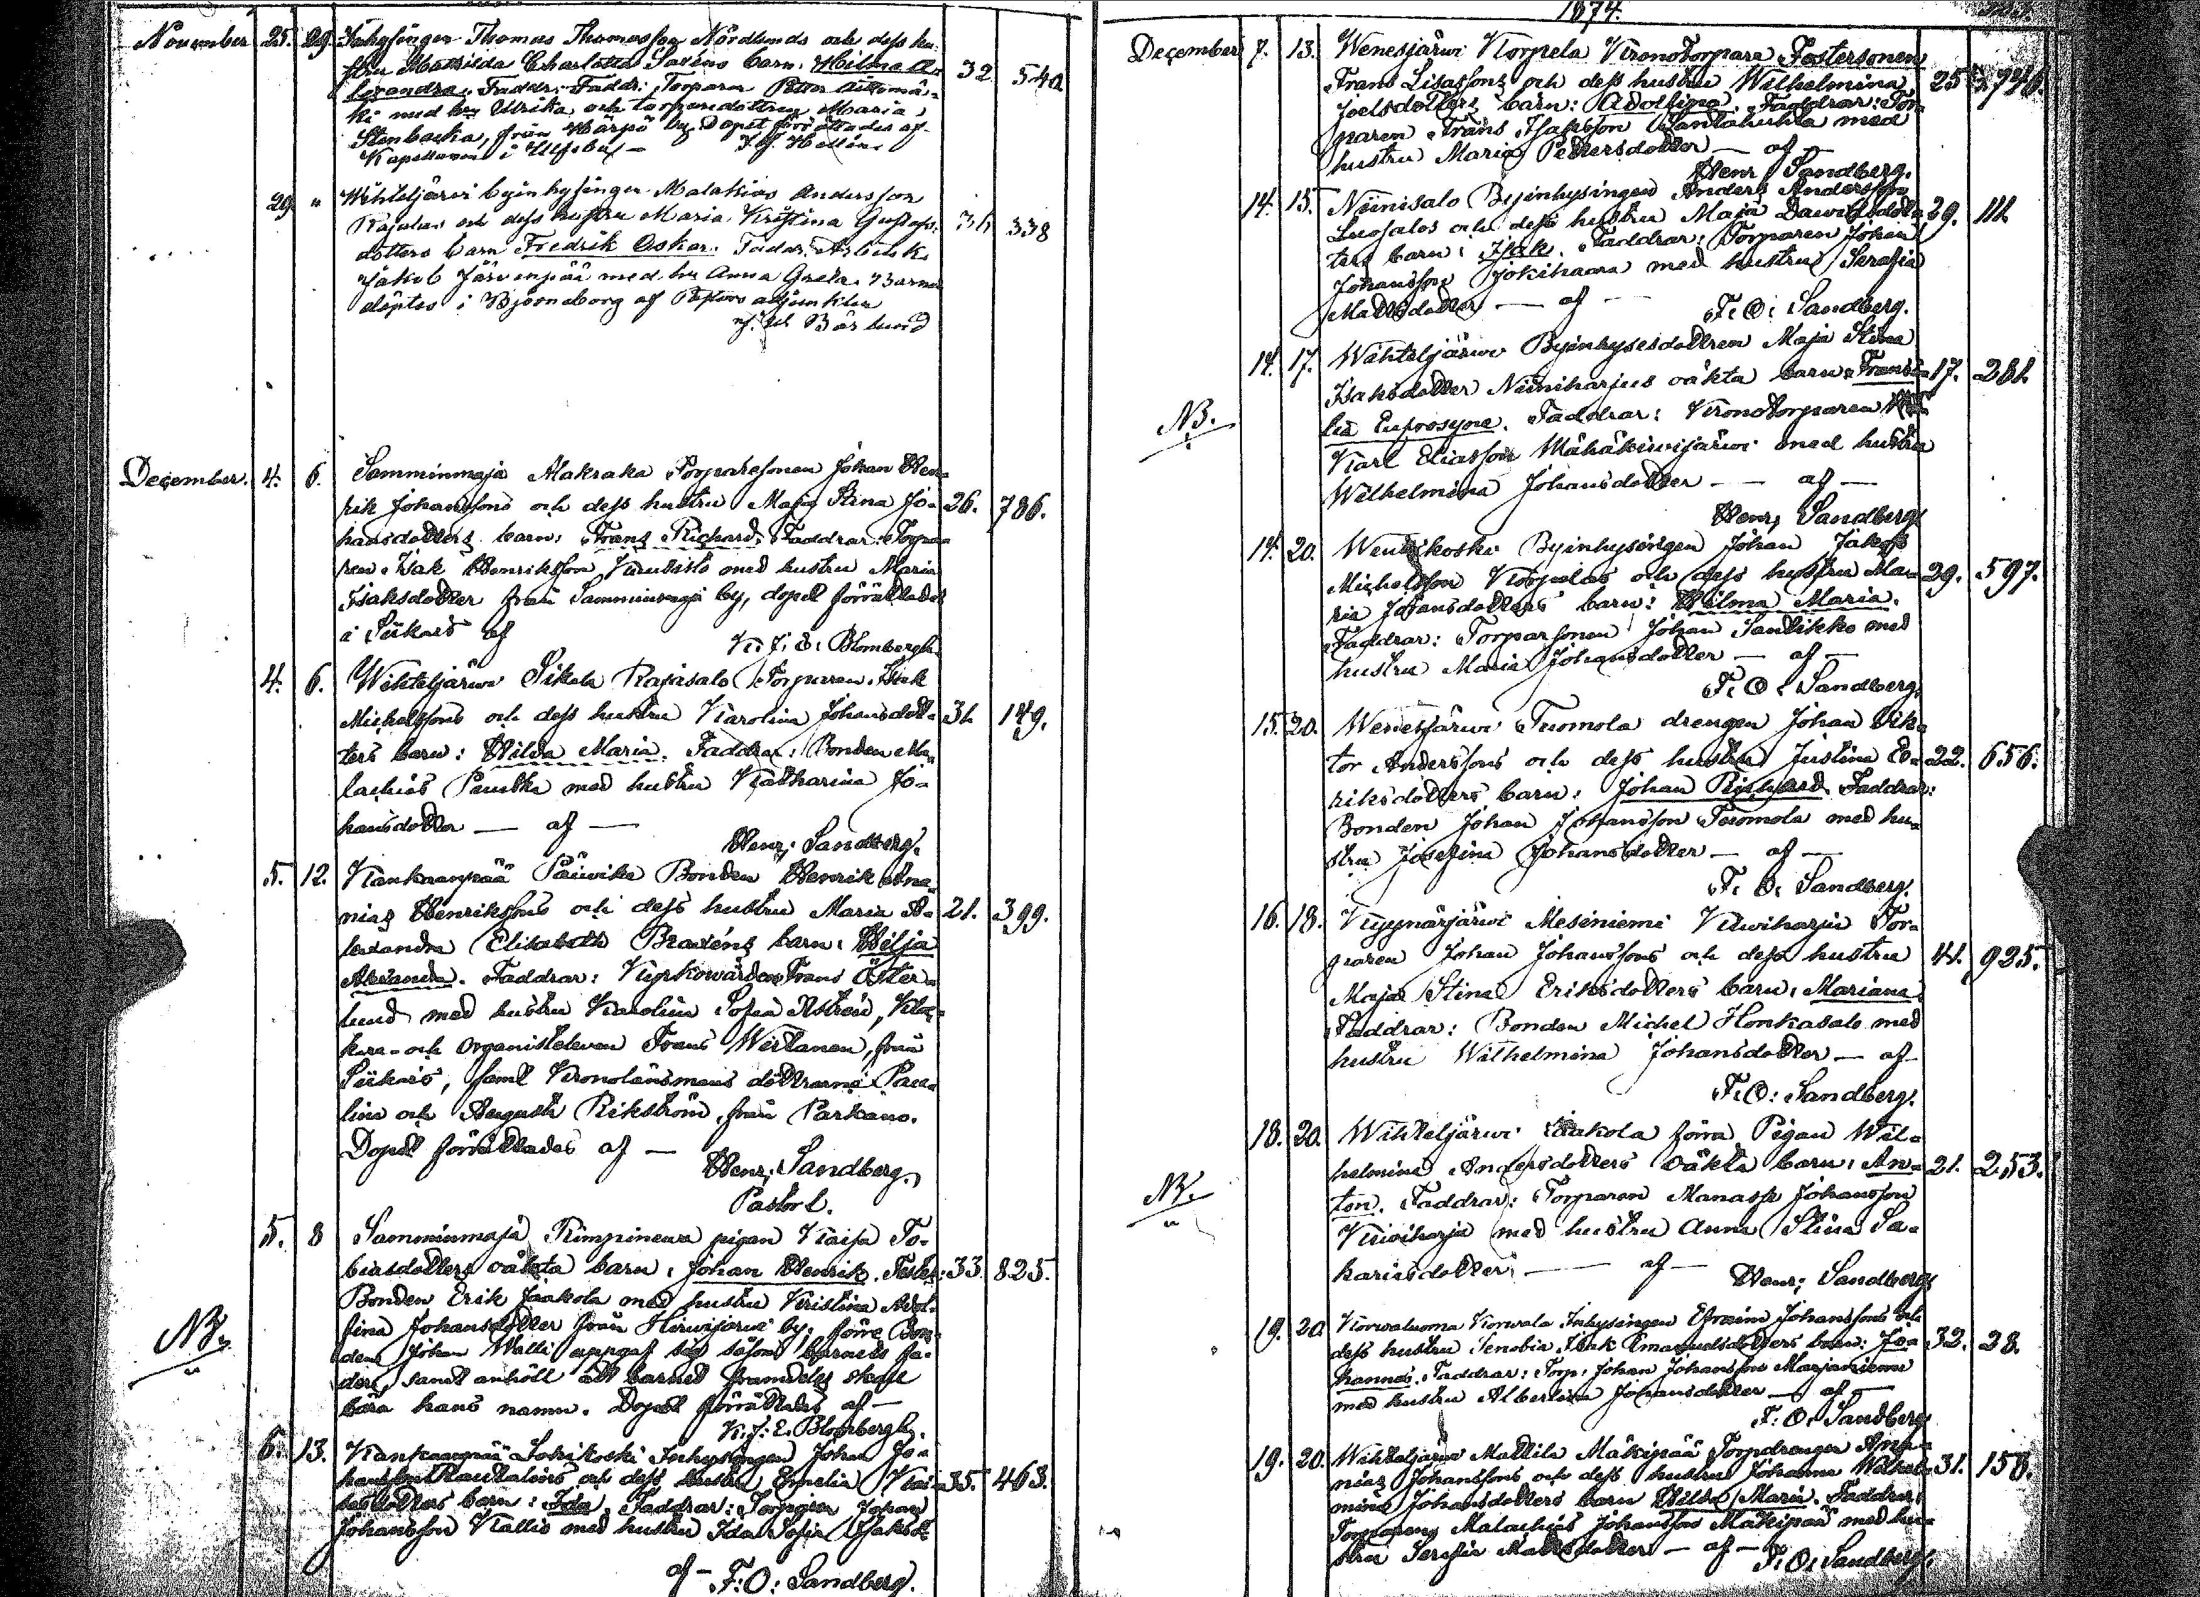 November 25. 29. Inhysingen Thomas Thomasson Nordlunds och dess hu-
stru Mathilda Charlotta barn: Hilma A-
lexandra. Faddr: Torparen Petter
ki med hu Ulrika och torparedottren Maria 32. 540
Stenbacka, från by. Dopet förrättades af
Kapellanen i Ulfsby —
29 " Wihteljärvi byinhysingen Malakias Andersson
Rajalas och dess hustru Maria Kristina Gustafs-
dotters barn Fredrik Oskar. Faddr: 338
Jakob Järvenpää med hu Anna Greta. Barnet
döptes i Björneborg af Pastors adjunkten
December. 4. 6. Samminmaja Makraka Torparesonen Johan Hen-
rik Johanssons och dess hustru Maja Stina Jo- 26. 786.
hansdotters barn: Frans Richard. Faddrar: Torpa-
ren Isak Henriksson med hustru Maria
Isaksdotter från Samminmaja by, dopet förrättades
i Siikais af K: J: E: Blombergh.
4. 6. Wihteljärvi Sikala Rajasalo Torparen Isak
Michelssons och dess hustru Karolina Johansdot- 31. 149.
ters barn: Hilda Maria. Faddrar: Bonden Ma-
lachias med hustru Katharina Jo-
hansdotter — af —
Henr: Sandberg.
5. 12. Kankaanpää Päiwike Bonden Henrik Ana-
nias Henrikssons och dess hustru Maria A- 21. 399.
lexandra Elisabeth barn: Hilja
Alexandra. Faddrar: Kyrkowärden Frans Öster-
lund med hustru Karolina Sofia Åström, Kloc-
kare- och Organisteleven Frans Wirtanen, från
Siikais, samt Kronolänsmans döttrarne Pau-
lina och Augusta Rikström, från Parkano.
Dopet förrättades af —
Henr: Sandberg.
Pastor l.
5. 8 Samminmaja Rimpinewa pigan Kaisa To-
biasdotters oäkta barn: Johan Henrik. Test: 33. 825.
Bonden Erik Jaakola med hustru Kristina Adol-
fina Johansdotter från Hirwijärwi by, förre Bon-
NB. den Johan Walli uppgaf sig såsom barnets fa-
der, samt anhöll att barnet framdeles skulle
bära hans namn. Dopet förrättades af —
K: J: E: Blombergh.
6. 13. Kankaanpää Lohikoski Inhysingen Johan Jo-
hansson Rautalins och dess hustru Emelia Kai- 35. 463.
barn: Ida. Faddrar: Torparen Johan
Johansson Kallio med hustru Ida Sofia Isaksd:
af — F: O: Sandberg.
1874.
December 7. 13. Wenesjärwi Korpela Kronotorpare Fostersonen
Frans Lisassons och dess hustru Wilhelmina 25
Joelsdotters barn: Adolfina. Faddrar: Tor-
paren Frans Isaksson Santalahta med
hustru Maria Pettersdotter — af —
Henr: Sandberg.
14. 15. Niinisalo Byinhysingen Anders Andersson
Luosalos och dess hustru Maja Dawidsdot- 29. 111
ters barn: Isak. Faddrar: Torparen Johan
Johansson Jokihaara med hustru Serafia
Mattsdotter — af —
F: O: Sandberg.
14. 17. Wihteljärwi Byinhysesdottren Maja Stina
Isaksdotter Niiniharjus oäkta barn: Transi- 17. 281
NB. lia Euprosyne. Faddrar: Kronotorparen
Karl Eliasson med hustru
Wilhelmina Johansdotter — af —
Henr: Sandberg.
14. 20. Byinhysingen Johan Jakob
Michelsson Korpelas och dess hustru Ma- 29. 597.
ria Johansdotters barn: Hilma Maria.
Faddrar: Torparsonen Johan Santikko med
hustru Maria Johansdotter — af —
F: O: Sandberg.
15. 20. Wenesjärwi Tuomola drengen Johan Wik-
tor Anderssons och dess hustru Justina Ed- 22. 656.
riksdotters barn: Johan Richard. Faddrar:
Bonden Johan Johansson Tuomola med hu-
stru Josefina Johansdotter — af —
F: O: Sandberg.
16. 18. Kyynärjärwi Mesiniemi Kiwiharju Tor-
paren Johan Johanssons och dess hustru 41. 925.
Maja Stina Eriksdotters barn: Mariana.
Faddrar: Bonden Michel Honkasalo med
hustru Wilhelmina Johansdotter — af —
F: O: Sandberg.
18. 20. Wihteljärwi Jaakola förra Pigan Wil-
helmina Andersdotters oäkta barn: An- 21. 253.
NB. ton. Faddrar: Torparen Manasse Johansson
Kiwiharju med hustru Anna Stina Sa-
kariasdotter — af —
Henr: Sandberg.
19. 20. Korwaluoma Korwala Inhysingen Efraim Johanssons och
dess hustru Senobia Isak Emanuelsdotters barn: Jo- 32. 28.
hannes. Faddrar: Torp: Johan Johansson Marjaniemi
med hustru Albertina Johansdotter — af —
F: O: Sandberg.
19. 20. Wihteljärwi Mattila Mäkipää Torpdrengen Ana-
nias Johanssons och dess hustru Johanna Wilhel- 31. 158.
mina Johansdotters barn Hilda Maria. Faddrar:
Torparen Malachias Johansson Mäkipää med hu-
stru Serafia Mattsdotter — af — F: O: Sandberg.